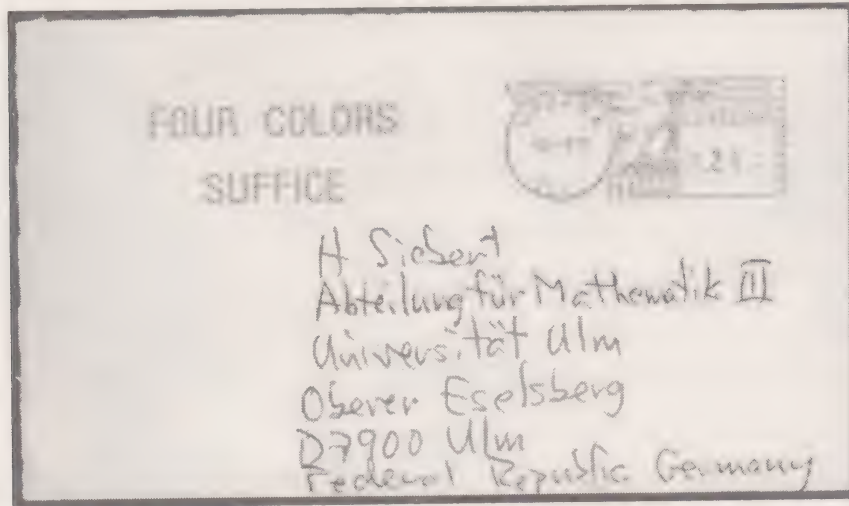 FOUR COLORS
SUFFICE
.21
H Siebert
Abteilung für Mathematik III
Universität Ulm
Oberer Eselsberg
D7900 Ulm
Federal Republic Germany